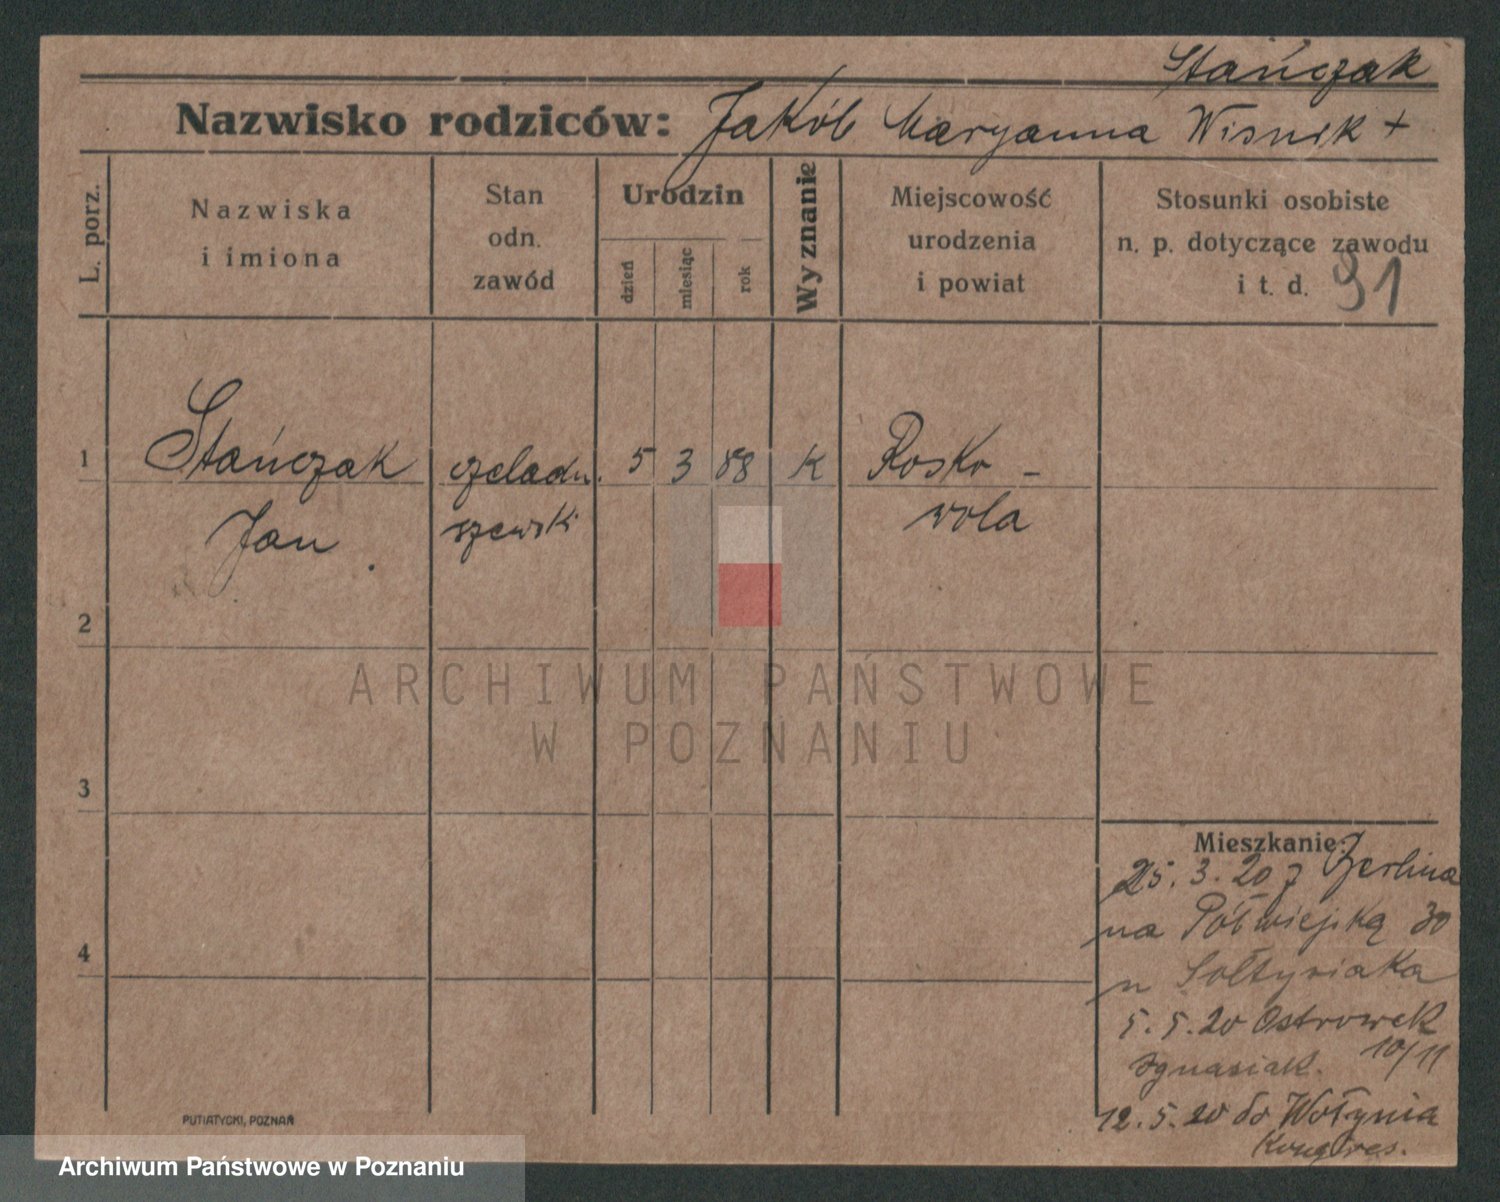 Stańczak
Nazwisko rodziców: Jakób Maryanna Wisnek +
L. porz.
Nazwiska
i imiona
Stan
odn.
zawód
Urodzin
dzień
miesiąc
rok
Wyznanie
Miejscowość
urodzenia
i powiat
Stosunki osobiste
n. p. dotyczące zawodu
i t. d. 91
1 Stańczak czeladn. 5 3 88 K Rosko-
Jan szewski wola
2
3
4
Mieszkanie:
25. 3. 20 z Berlina
na Półwiejską 30
u Sołtysiaka
5. 5. 20 Ostrowek
10/11
Ignasiak.
12. 5. 20 do Wołynia
Kongres.
PUTIATYCKI, POZNAŃ
ARCHIWUM PAŃSTWOWE
W POZNANIU
Archiwum Państwowe w Poznaniu